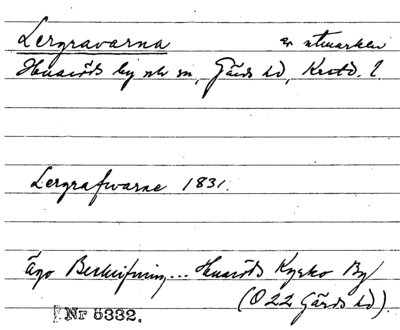 Lergravarna av utmarken
Huaröds by och sn, Gärds hd, Krstd. l.
Lergrafwarne 1831.
Ägo Beskrifning... Huaröds Kyrko By
(O22 Gärds hd).
Nr 5332.